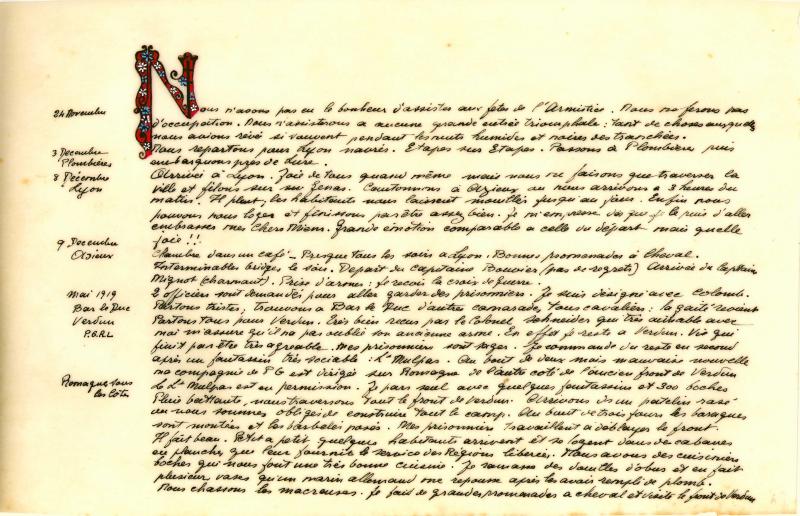 24 Novembre
Nous n'avons pas eu le bonheur d'assister aux fetes de l'Armistice. Nous ne ferons pas
d'occupation. Nous n'assisterons a aucune grande entrée triomphale: tant de choses auxquelles
nous avions rêvé si souvent pendant les nuits humides et noires des tranchées.
3 Decembre
Nous repartons pour Lyon navrés. Etapes sur Etapes. Passons à Plombières puis
Plombières
embarquons près de Lure.
8 Décembre
Arrivée à Lyon. Joie de tous quand même mais nous ne faisons que traverser la
Lyon
ville et filons sur Genas. Cantonnons à Azieux ou nous arrivons a 3 heures du
matin. Il pleut, les habitants nous laissent mouillés jusqu'au jour. Enfin nous
pouvons nous loger et finissons par être assez bien. Je m'empresse dès que je le puis d'aller
embrasser mes Chers Miens. Grande émotion comparable a celle du départ mais quelle
joie!!!
9 Decembre
Chambre dans un café - Presque tous les soirs a Lyon. Bonnes promenades à cheval.
Azieux
Interminables bridges le soir. Départ du capitaine Bouvier (pas de regrets) Arrivée du Capitaine
Mignot (charmant). Prise d'armes: je recois la croix de Guerre.
Mai 1919
2 officiers sont demandés pour aller garder des prisonniers. Je suis désigné avec Colomb.
Bar le Duc
Partons tristes; trouvons a Bar le Duc d'autres camarades, tous cavaliers: la gaité revient
Verdun
Partons tous pour Verdun. Très bien recus par le Colonel Schneider que très aimable avec
P.G.R.L
moi m'assure qu'il n'a pas oublié son ancienne arme. En effet je reste a Verdun. Vie qui
finit par être très agreable. Mes prisonniers sont sages. Je commande du reste en second
après un fantassin très sociable: Lt Mulpas. Au bout de deux mois mauvaise nouvelle
ma compagnie de PG est dirigée sur Romagne de l'autre coté de l'ancien front de Verdun
Romagne sous
les Côtes
Le Lt Mulpas est en permission. Je pars seul avec quelques fantassins et 300 boches
Pluie battante, nous traversons tout le front de Verdun. Arrivons ds un patelin rasé
ou nous sommes obligés de construire tout le camp. Au bout de trois jours les baraques
sont montées et les barbelés posés. Mes prisonniers travaillent à déblayer le front.
Il fait beau. Petit a petit quelques habitants arrivent et se logent dans des cabanes
en planches que leur fournit le service des Régions libérées. Nous avons des cuisiniers
boches qui nous font une très bonne cuisine. Je ramasse des douilles d'obus et en fait
plusieurs vases qu'un marin allemand me repousse après les avoir rempli de plomb.
Nous chassons les macreuses. Je fais de grandes promenades a cheval et visite le front de Verdun